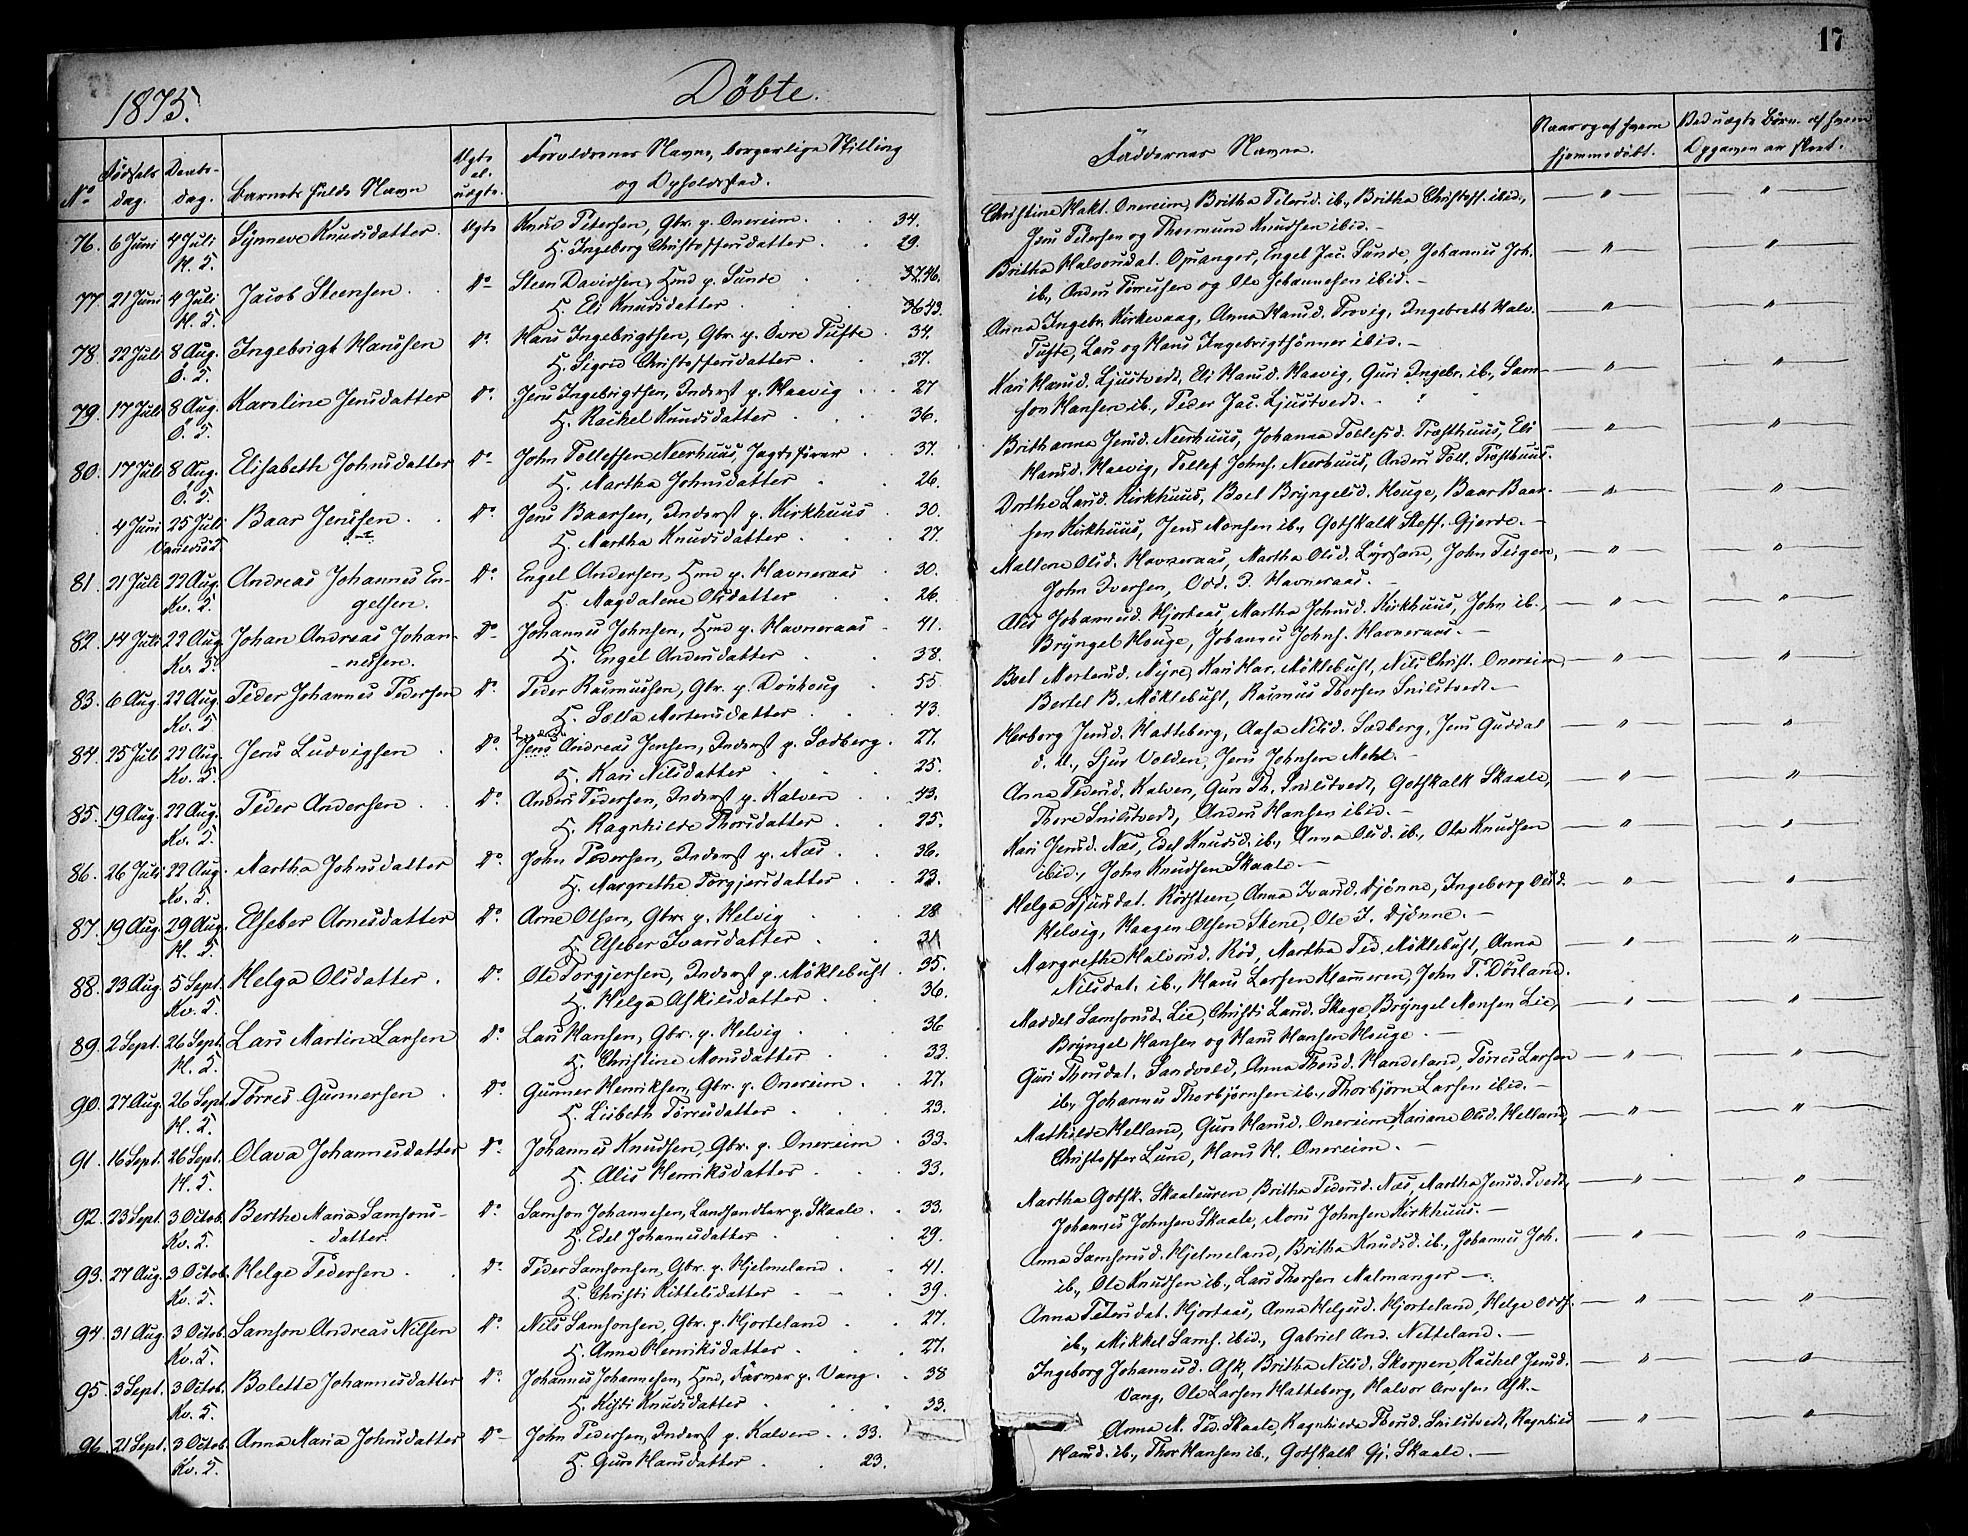 17
1875.
Døbte.
No
Fødsels dag.
Daabs- dag.
Barnets fulde Navn
Ægte el. uægte.
Forældrenes Navne, borgerlige Stilling
og Opholdssted.
Faddernes Navne.
Naar og af hvem
hjemmedøbt.
Ved uægte Børn af hvem
Opgaven er skeet.
76. 6 Juni 4 Juli Synneve Knudsdatter. Ægte Knud Petersen, Gbr. p. Onereim. 34.
H. S. H. Ingeborg Christoffersdatter 29.
Christine Hakt. Onereim, Britha Petersd. ib., Britha Christoff. ibid.,
Jens Pedersen og Thormund Knudsen ibid. — " — " —
77. 21 Juni 4 Juli Jacob Steensen. do Steen Davidsen, Hmd p. Sunde 37.46.
H. S. H. Eli Knudsdatter 36 43.
Britha Halvorsdat. Opsanger, Engel Jac. Sunde, Johannes Joh.
ib., Anders Tørresen og Ole Johannesen ibid. — " — " —
78. 22 Juli 8 Aug. Ingebrigt Hansen do Hans Ingebrigtsen, Gbr. p. Øvre Tufte. 34.
Ø. S. H. Sigrid Christoffersdatter 37.
Anna Ingebr. Kirkevaag, Anna Hansd. Trovig, Ingebreth Halv.
Tufte, Lars og Hans Ingebrigtsønner ibid. — " — " —
79. 17 Juli 8 Aug. Karoline Jensdatter do Jens Ingebrigtsen, Inderst p. Haavig 27
Ø. S. H. Rachel Knudsdatter 36.
Kari Hansd. Ljustvedt, Eli Hansd. Haavig, Guri Ingebr. ib., Sam-
son Hansen ib., Peder Jac. Ljustvedt. — " — " —
80. 17 Juli 8 Aug. Elisabeth Johnsdatter do John Tollefsen Neerhuus, Jagtfører 37.
Ø. S. H. Martha Johnsdatter 26.
Brithanna Jensd. Neerhuus, Johanna Tollefsd. Træsthuus, Eli
Hansd. Haavig, Tollef Johns. Neerhuus, Anders Toll. Træsthuus. — " — " —
4 Juni 25 Juli Baar Jensen. do Jens Baarsen, Inderst p. Kirkhuus 30.
H. Martha Knudsdatter 27.
Dorthe Larsd. Kirkhuus, Boel Bryngelsd. Houge, Baar Baar-
sen Kirkhuus, Jens Monsen ib., Gotskalk Steff. Gjerde. — " — " —
81. 21 Juli 22 Aug. Andreas Johannes En- do Engel Andersen, Hmd p. Havneraas 30.
Kv. S. gelsen. H. Magdalene Olsdatter 26.
Maltene Olsd. Havneraas, Martha Olsd. Lyssam, John Teigen,
John Iversen, Odd. I. Havneraas. — " — " —
82. 14 Juli 22 Aug. Johan Andreas Johan- do Johannes Johnsen, Hmd p. Havneraas 41.
Kv. S. nessen. H. Engel Andersdatter 38.
Alis Johannesd. Hjortaas, Martha Johnsd. Kirkhuus, John ib.,
Bryngel Houge, Johannes Johns. Havneraas. — " — " —
83. 6 Aug. 22 Aug. Peder Johannes Pedersen do Peder Rasmussen, Gbr. p. Dönhoug 55
Kv. S. H. Sølla Mortensdatter 43.
Boel Mortensd. Myre, Kari Har. Møklebust, Nils Christ. Onereim,
Bertel B. Møklebust, Rasmus Thorsen Snilstvedt. — " — " —
84. 25 Juli 22 Aug. Jens Ludvigsen do Jens Andreas Jensen, Inderst p. Sodberg. 27.
Kv. S. H. Kari Nilsdatter 25.
Herborg Jensd. Hatteberg, Aasa Nilsd. Sodberg, Jens Guddal
d. U., Sjur Volden, Jens Johnsen Mehl. — " — " —
85. 19 Aug. 22 Aug. Peder Andersen do Anders Pedersen, Inderst p. Kalven 43.
Kv. S. H. Ragnhilde Thorsdatter 25.
Anna Pedersd. Kalven, Guro Th. Snilstvedt, Gotskalk Skaale,
Thore Snilstvedt, Anders Hansen ibid. — " — " —
86. 26 Juli 22 Aug. Martha Johnsdatter do John Pedersen, Inderst p. Næs 36.
Kv. S. H. Margrethe Torgjersdatter 23.
Kari Jensd. Næs, Edel Knudsd. ib., Anna Olsd. ib., Ole Knudsen
ibid., John Knudsen Skaale. — " — " —
87. 19 Aug. 29 Aug. Elseber Arnesdatter do Arne Olsen, Gbr. p. Helvig 28
H. S. H. Elseber Ivarsdatter 31
Helga Sjursdat. Rørsteen, Anna Ivarsd. Djønne, Ingeborg Olsd.
Helvig, Haagen Olsen Stene, Ole I. Djønne. — " — " —
88. 23 Aug. 5 Sept. Helga Olsdatter. do Ole Torgjersen, Inderst p. Møklebust 35.
Kv. S. H. Helga Askilsdatter 36.
Margrethe Halvorsd. Rød, Martha Ped. Møklebust, Anna
Nilsdat. ib., Hans Larsen Hammeren, John T. Døsland. — " — " —
89. 2 Sept. 26 Sept. Lars Martin Larsen do Lars Hansen, Gbr. p. Helvig 36
H. S. H. Christine Monsdatter 33.
Maddel Samsonsd. Lie, Christi Larsd. Skage, Bryngel Monsen Lie,
Bryngel Hansen og Hans Hansen Houge. — " — " —
90. 27 Aug. 26 Sept. Tørres Gunnersen do Gunner Henriksen, Gbr. p. Onereim 27.
H. S. H. Lisbeth Tørresdatter 23.
Guri Thorsdat. Sandvold, Anna Thorsd. Handeland, Tørres Larsen
ib., Johannes Thorbjørnsen ib., Thorbjørn Larsen ibid. — " — " —
91. 16 Sept. 26 Sept. Olava Johannesdatter do Johannes Knudsen, Gbr. p. Onereim 33.
H. S. H. Alis Henriksdatter 33.
Mathilde Helland, Guro Hansd. Onereim, Kariane Olsd. Helland,
Christoffer Lund, Hans H. Onereim. — " — " —
92. 23 Sept. 3 Octob. Berthe Maria Samsons- do Samson Johannesen, Landhandler p. Skaale 33.
Kv. S. datter. H. Edel Johannesdatter 29.
Martha Gotsk. Skaaleuren, Britha Pedersd. Næs, Martha Jensd. Tvedt,
Johannes Johnsen Skaale, Mons Johnsen Kirkhuus. — " — " —
93. 27 Aug. 3 Octob. Helge Pedersen do Peder Samsonsen, Gbr. p. Hjelmeland 41.
Kv. S. H. Christi Kittelsdatter 39.
Anna Samsonsd. Hjelmeland, Britha Knudsd. ib., Johannes Joh.
ib., Ole Knudsen ib., Lars Thorsen Malmanger. — " — " —
94. 31 Aug. 3 Octob. Samson Andreas Nilsen do Nils Samsonsen, Gbr. p. Hjorteland 27.
Kv. S. H. Anna Henriksdatter 27.
Anna Petersdat. Hjortaas, Anna Helgesd. Hjorteland, Helge Odds.
ib., Mikkel Sams. ibid., Gabriel And. Netteland. — " — " —
95. 3 Sept. 3 Octob. Bolette Johannesdatter do Johannes Johannesen, Hmd, Farver p. Vang 38
Kv. S. H. Kisti Knudsdatter 33.
Ingeborg Johannesd. Ask, Britha Nilsd. Skorpen, Rachel Jensd.
Vang, Ole Larsen Hatteberg, Halvor Arvesen Ask. — " — " —
96. 21 Sept. 3 Octob. Anna Maria Johnsdatter do John Pedersen, Inderst p. Kalven 33.
Kv. S. H. Guro Hansdatter 23.
Anna M. Ped. Skaale, Ragnhilde Thorsd. Snilstvedt, Ragnhild
Hansd. ib., Thor Hansen ib., Gotskalk Gj. Skaale. — " — " —